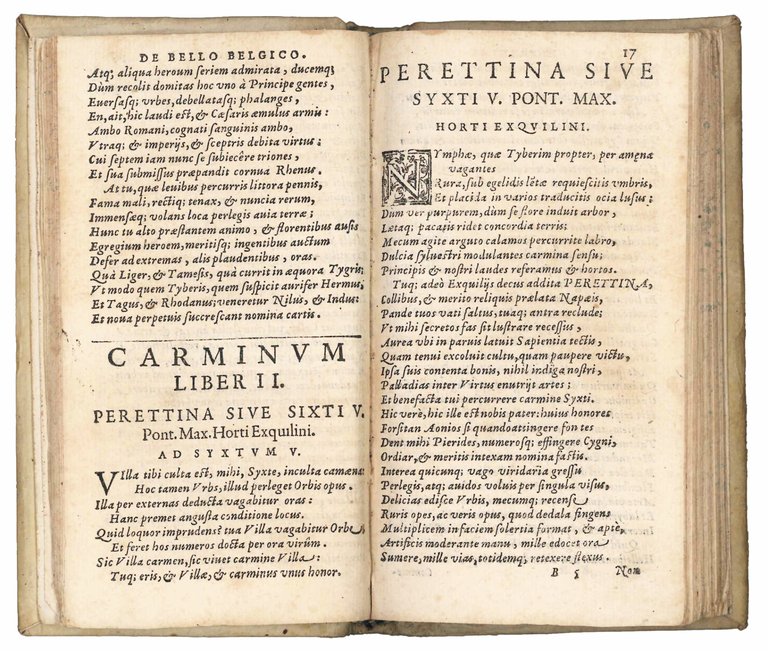 DE BELLO BELGICO.
Atq; aliqua heroum seriem admirata, ducemq;
Dùm recolit domitas hoc vno à Principe gentes,
Euersasq; vrbes, debellatasq; phalanges,
En, ait, hic laudi est, & Cæsaris æmulus armis:
Ambo Romani, cognati sanguinis ambo,
Vtraq; & imperijs, & sceptris debita virtus;
Cui septem iam nunc se subiecêre triones,
Et sua submissus præpandit cornua Rhenus.
At tu, quæ leuibus percurris littora pennis,
Fama mali, rectiq; tenax, & nuncia rerum,
Immensæq; volans loca perlegis auia terræ;
Hunc tu alto præstantem animo, & florentibus ausis
Egregium heroem, meritisq; ingentibus auctum
Defer ad extremas, alis plaudentibus, oras.
Quà Liger, & Tamesis, quà currit in æquora Tygris;
Vt modo quem Tyberis, quem suspicit aurifer Hermus,
Et Tagus, & Rhodanus; veneretur Nilus, & Indus:
Et noua perpetuis succrescant nomina cartis.
CARMINVM
LIBER II.
PERETTINA SIVE SIXTI V.
Pont. Max. Horti Exquilini.
AD SYXTVM V.
VIlla tibi culta est, mihi, Syxte, inculta camæna:
Hoc tamen Vrbs, illud perleget Orbis opus.
Illa per externas deducta vagabitur oras:
Hanc premet angusta conditione locus.
Quid loquor imprudens? tua Villa vagabitur Orbe,
Et feret hos numeros docta per ora virûm.
Sic Villa carmen, sic viuet carmine Villa:
Tuq; eris, & Villæ, & carminus vnus honor.
17
PERETTINA SIVE
SYXTI V. PONT. MAX.
HORTI EXQVILINI.
NYmphæ, quæ Tyberim propter, per amena
vagantes
Rura, sub egelidis lętæ requiescitis vmbris,
Et placida in varios traducitis ocia lusus:
Dum ver purpureum, dùm se flore induit arbor,
Lætaq; pacatis ridet concordia terris:
Mecum agite arguto calamos percurrite labro,
Dulcia syluestri modulantes carmina sensu;
Principis & nostri laudes referamus & hortos.
Tuq; adeò Exquilijs decus addita PERETTINA,
Collibus, & merito reliquis prælata Napæis,
Pande tuos vati saltus, tuaq; antra reclude;
Vt mihi secretos fas sit lustrare recessus,
Aurea vbi in paruis latuit Sapientia tectis,
Quam tenui excoluit cultu, quam paupere victu,
Ipsa suis contenta bonis, nihil indiga nostri,
Palladias inter Virtus enutrijt artes;
Et benefacta tui percurrere carmine Syxti.
Hic verè, hic ille est nobis pater: huius honores
Forsitan Aonios si quando attingere fontes
Dent mihi Pierides, numerosq; effingere Cygni,
Ordiar, & meritis intexam nomina factis.
Interea quicunq; vago viridaria gressu
Perlegis, atq; auidos voluis per singula visus,
Delicias edisce Vrbis, mecumq; recense
Ruris opes, ac veris opus, quod dedala fingens
Multiplicem in faciem solertia format, & aptè,
Artificis moderante manu, mille edocet ora
Sumere, mille vias, totidemq; retexere flexus.
B 5 Non